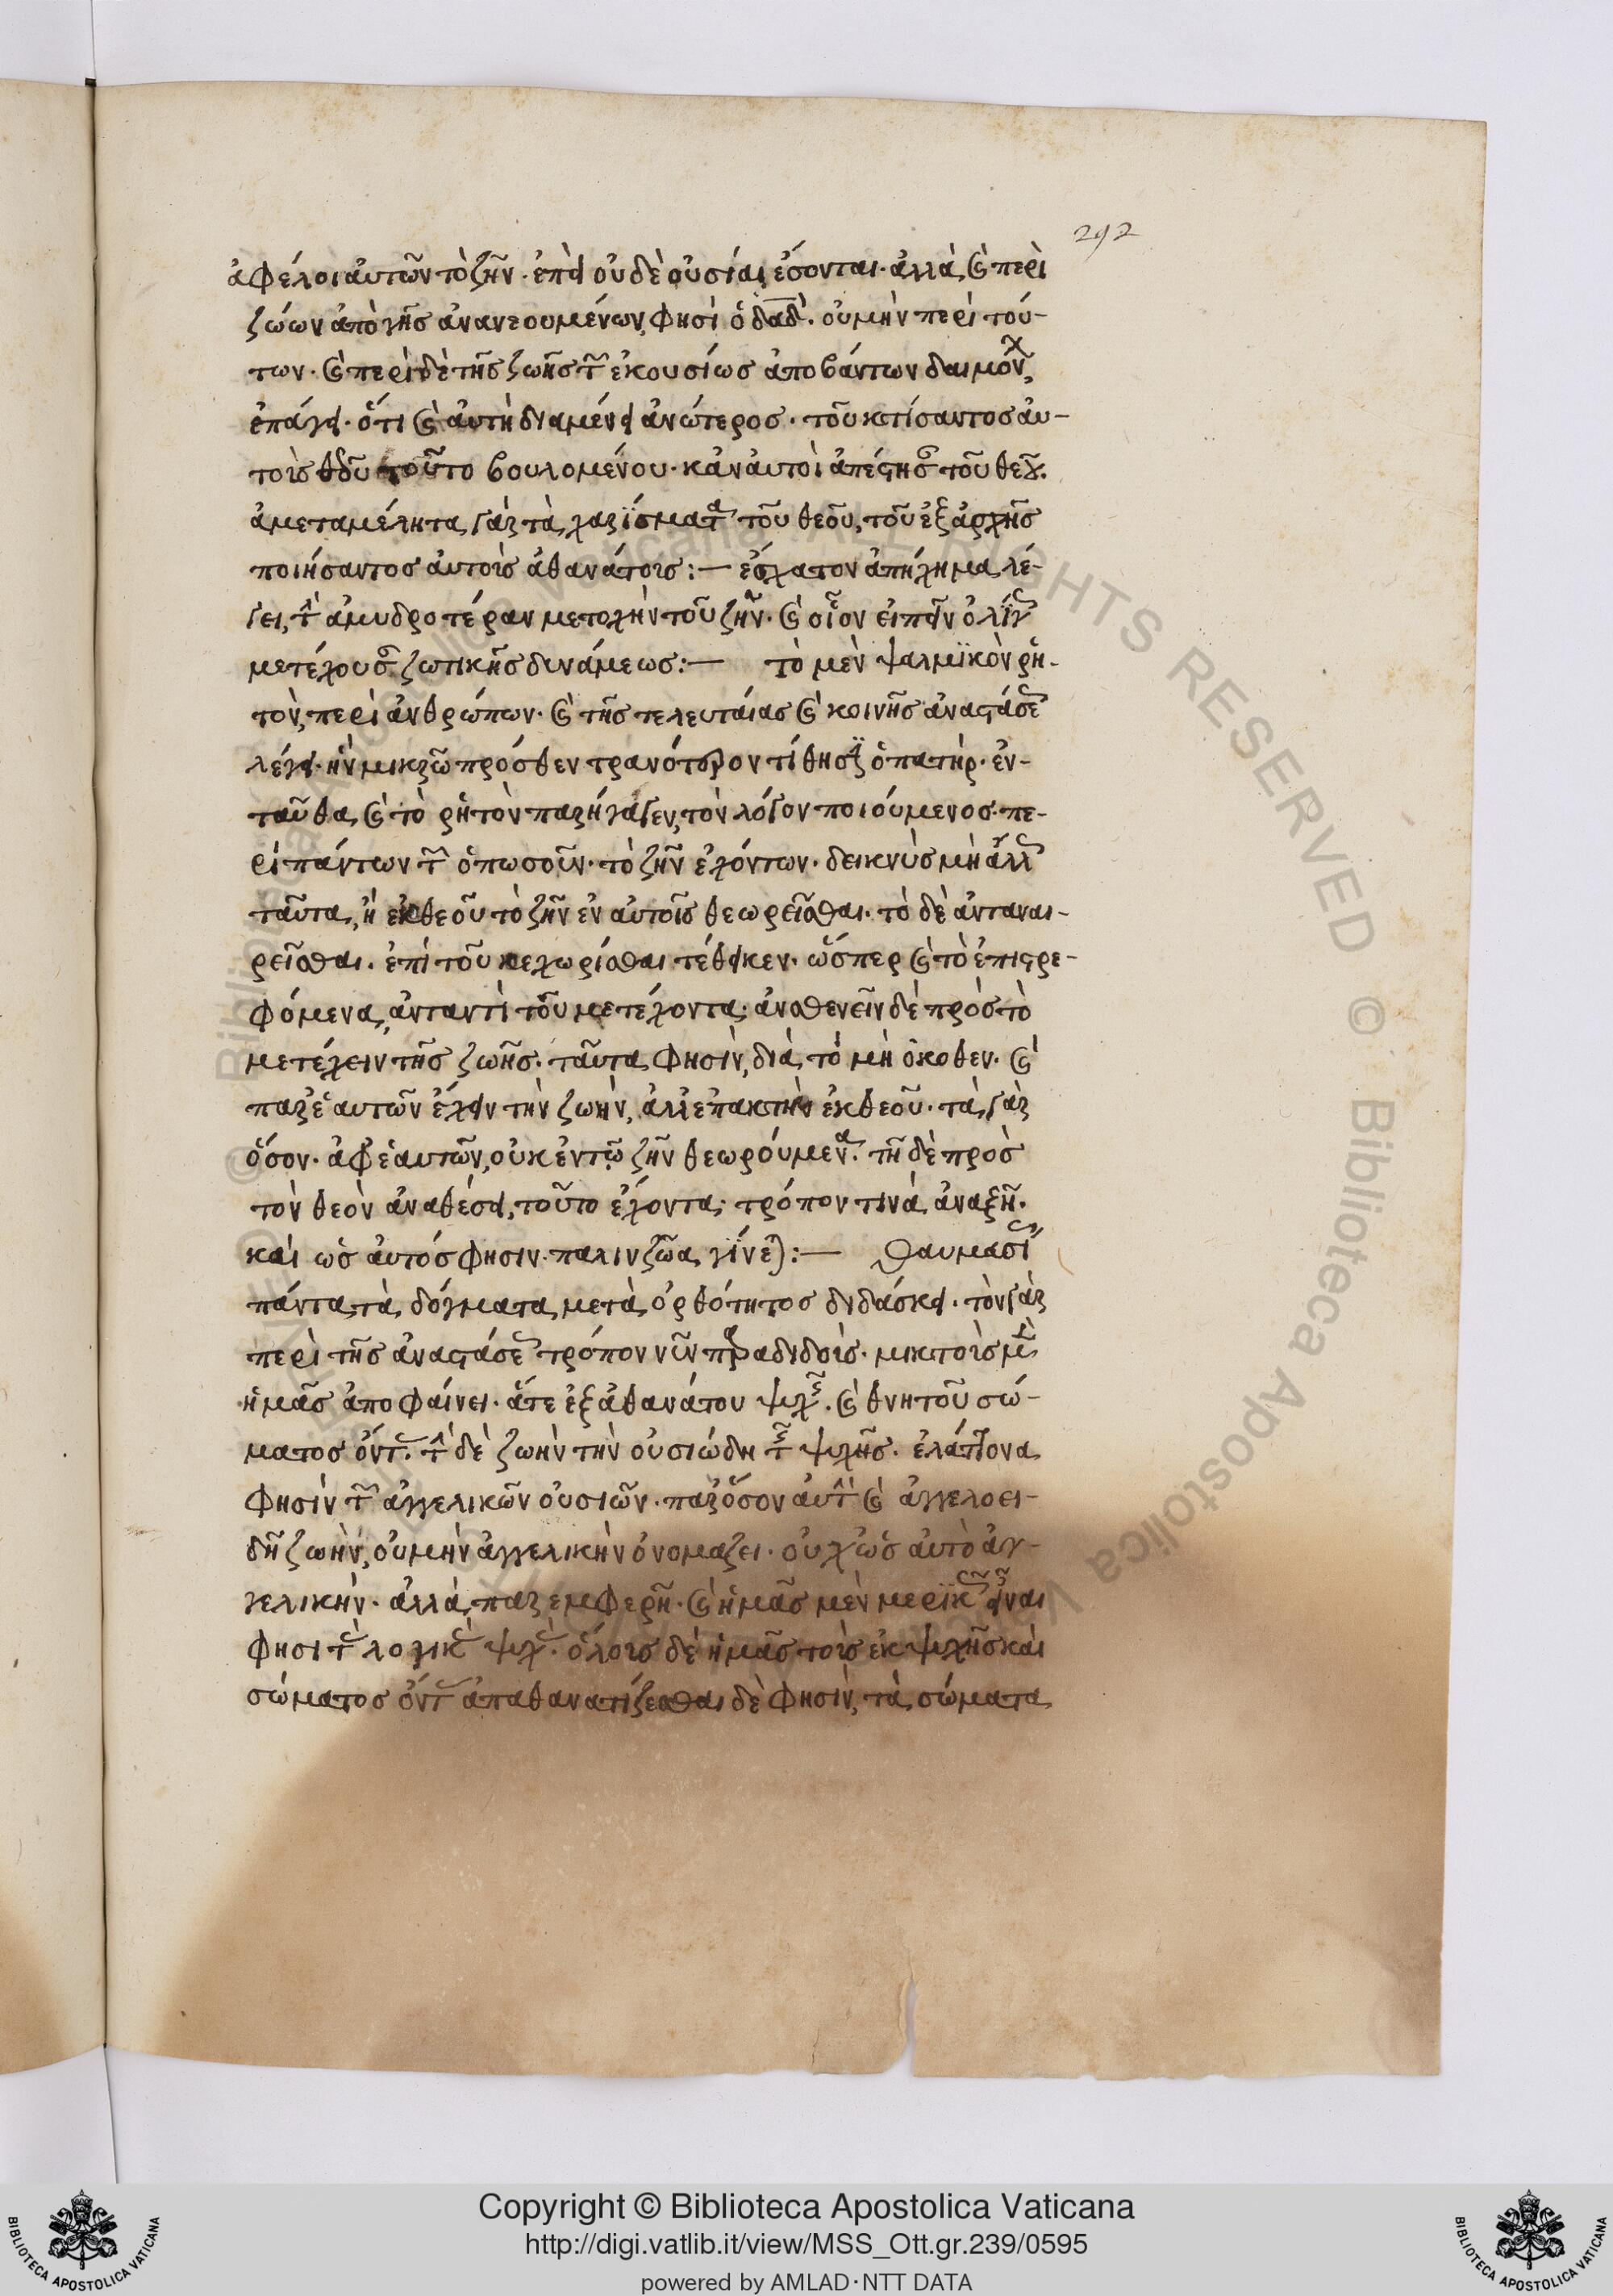 292
ἀφέλοι αὐτῶν τὸ ζῆν· ἐπεὶ οὐδὲ οὐσίαι ἔσονται· ἀλλὰ καὶ περὶ
ζώων ἀπὸ γῆς ἀνανεουμένων, φησὶ ὁ δαδ· οὐ μὴν περὶ τού-
των· καὶ περὶ δὲ τῆς ζωῆς τῶν ἑκουσίως ἀποβάντων δαιμόνων,
ἐπάγει· ὅτι καὶ αὐτὴ διαμένει ἀνώτερος· τοῦ κτίσαντος αὐ-
τοῖς θεοῦ τοῦτο βουλομένου· κἂν αὐτοὶ ἀπέστησαν τοῦ θεοῦ·
ἀμεταμέλητα γὰρ τὰ χαρίσματα τοῦ θεοῦ, τοῦ ἐξ ἀρχῆς
ποιήσαντος αὐτοῖς ἀθανάτοις:— ἔσχατον ἀπήχημα λέ-
γει, τὴν ἀμυδροτέραν μετοχὴν τοῦ ζῆν· καὶ οἷον εἰπεῖν ὀλίγης
μετέχουσαν ζωτικῆς δυνάμεως:— τὸ μὲν ψαλμικὸν ῥη-
τὸν, περὶ ἀνθρώπων· καὶ τῆς τελευταίας καὶ κοινῆς ἀναστάσεως
λέγει· ἣν μικρῶ πρόσθεν τρανότερον τίθησιν ὁ πατήρ· ἐν-
ταῦθα καὶ τὸ ῥητὸν παρήγαγεν, τὸν λόγον ποιούμενος πε-
ρὶ πάντων τῶν ὁπωσοῦν· τὸ ζῆν ἐχόντων· δεικνὺς μὴ ἄλλως
ταῦτα, ἢ ἐκ θεοῦ τὸ ζῆν ἐν αὐτοῖς θεωρεῖσθαι· τὸ δὲ ἀνταναι-
ρεῖσθαι· ἐπὶ τοῦ κεχωρίσθαι τέθεικεν· ὥσπερ καὶ τὸ ἐπιστρε-
φόμενα, ἀνταντὶ τοῦ μετέχοντα· ἀνασθενεῖν δὲ πρὸς τὸ
μετέχειν τῆς ζωῆς· ταῦτα φησὶν, διὰ τὸ μὴ οἴκοθεν· καὶ
παρ' ἑαυτῶν ἔχειν τὴν ζωὴν, ἀλλ' ἐπακτὴν ἐκ θεοῦ· τὰ γὰρ
ὅσον· ἀφ' ἑαυτῶν, οὐκ ἐν τῷ ζῆν θεωρούμενα· τῆ δὲ πρὸς
τὸν θεὸν ἀναθέσει, τοῦτο ἔχοντα· τρόπον τινὰ ἀναζῆ·
καὶ ὡς αὐτός φησιν· πάλιν ζῶα γίνεται:— θαυμασίως
πάντα τὰ δόγματα μετὰ ὀρθότητος διδάσκει· τὸν γὰρ
περὶ τῆς ἀναστάσεως τρόπον νῦν παραδιδοὺς· μικτοὺς μὲν
ἡμᾶς ἀποφαίνει· ἅτε ἐξ ἀθανάτου ψυχῆς· καὶ θνητοῦ σώ-
ματος ὄντας· τὴν δὲ ζωὴν τὴν οὐσιώδη τῆς ψυχῆς· ἐλάττονα
φησὶν τῶν ἀγγελικῶν οὐσιῶν· παρ' ὅσον αὐτὴν καὶ ἀγγελοει-
δῆ ζωὴν, οὐ μὴν ἀγγελικὴν ὀνομάζει· οὐχ ὡς αὐτὸ ἀγ-
γελικὴν· ἀλλὰ παρεμφερῆ· καὶ ἡμᾶς μὲν μερικῶς εἶναι
φησὶ τὰς λογικὰς ψυχάς· ὅλους δὲ ἡμᾶς τοὺς ἐκ ψυχῆς καὶ
σώματος ὄντας ἀπαθανατίζεσθαι δὲ φησὶν, τὰ σώματα
Copyright © Biblioteca Apostolica Vaticana
http://digi.vatlib.it/view/MSS_Ott.gr.239/0595
powered by AMLAD·NTT DATA